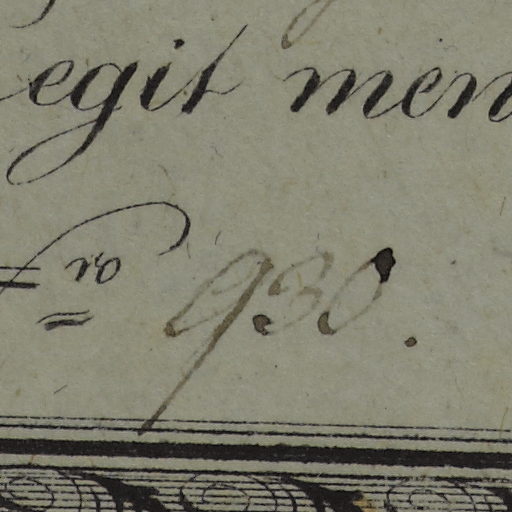 egit men
ro 930.